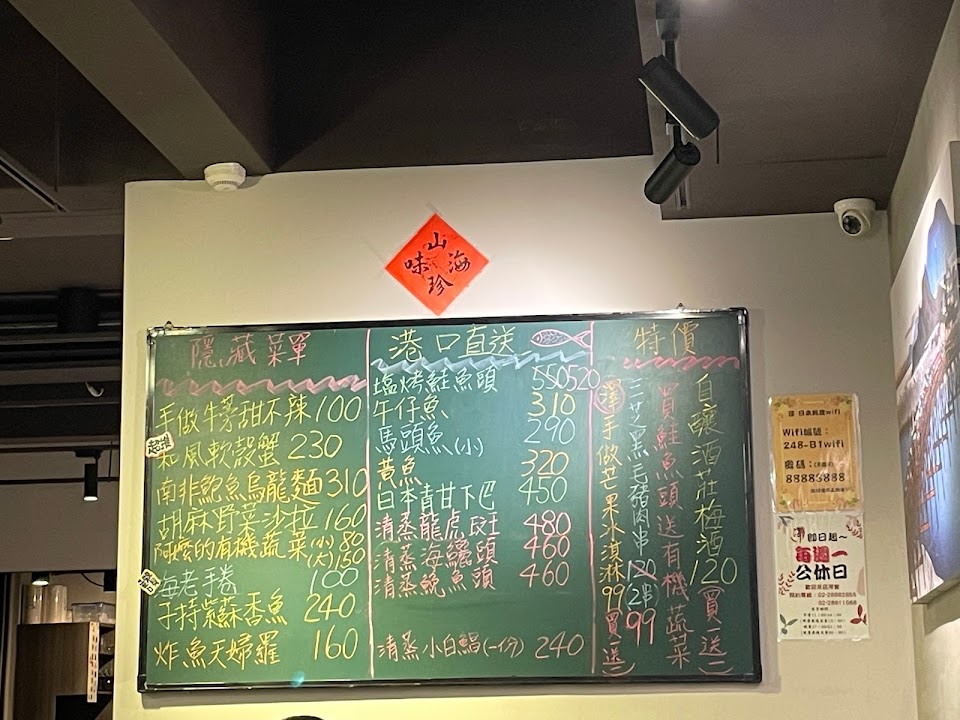 山
味 海
珍
隱藏菜單
手做牛蒡甜不辣 100
和風軟殼蟹 230
南非鮑魚烏龍麵 310
胡麻野菜沙拉 160
阿嬤的有機蔬菜 (小) 80
(大) 150
海老手卷 100
子持紫蘇香魚 240
炸魚天婦羅 160
港口直送
塩烤鮭魚頭 550 520
午仔魚 310
馬頭魚(小) 290
黄魚 320
日本青甘下巴 450
清蒸龍虎斑 480
清蒸海鱺頭 460
清蒸鮸魚頭 460
清蒸小白鯧(一份) 240
特價
自釀酒莊梅酒 120 (買一送一)
買鮭魚頭送有機蔬菜
三芝黑毛豬肉串 120 2串 99
澤手做芒果冰淇淋 99 (買一送一)
Wifi帳號:
248-B1wifi
密碼:
88883888
即日起~
每週一
公休日
歡迎來店用餐